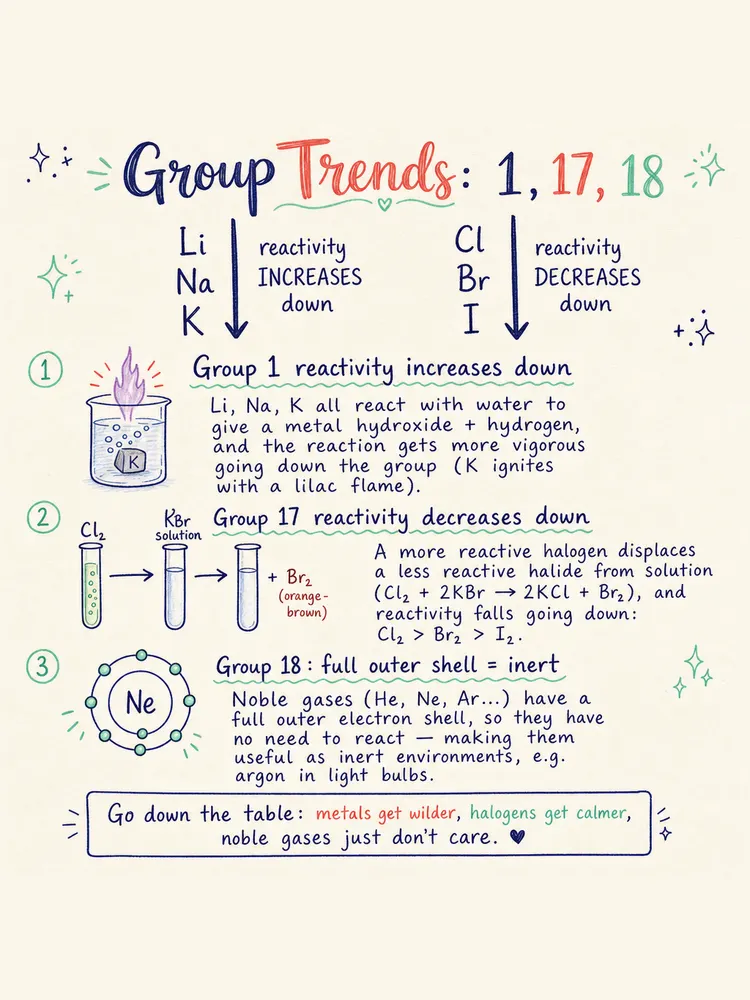 Group Trends: 1, 17, 18
Li
Na
K
reactivity
INCREASES
down
Cl
Br
I
reactivity
DECREASES
down
1
Group 1 reactivity increases down
K
Li, Na, K all react with water to
give a metal hydroxide + hydrogen,
and the reaction gets more vigorous
going down the group (K ignites
with a lilac flame).
2
Group 17 reactivity decreases down
Cl₂
KBr
solution
+ Br₂
(orange-
brown)
A more reactive halogen displaces
a less reactive halide from solution
(Cl₂ + 2KBr → 2KCl + Br₂), and
reactivity falls going down:
Cl₂ > Br₂ > I₂.
3
Group 18: full outer shell = inert
Ne
Noble gases (He, Ne, Ar...) have a
full outer electron shell, so they have
no need to react — making them
useful as inert environments, e.g.
argon in light bulbs.
Go down the table: metals get wilder, halogens get calmer,
noble gases just don't care. ♥